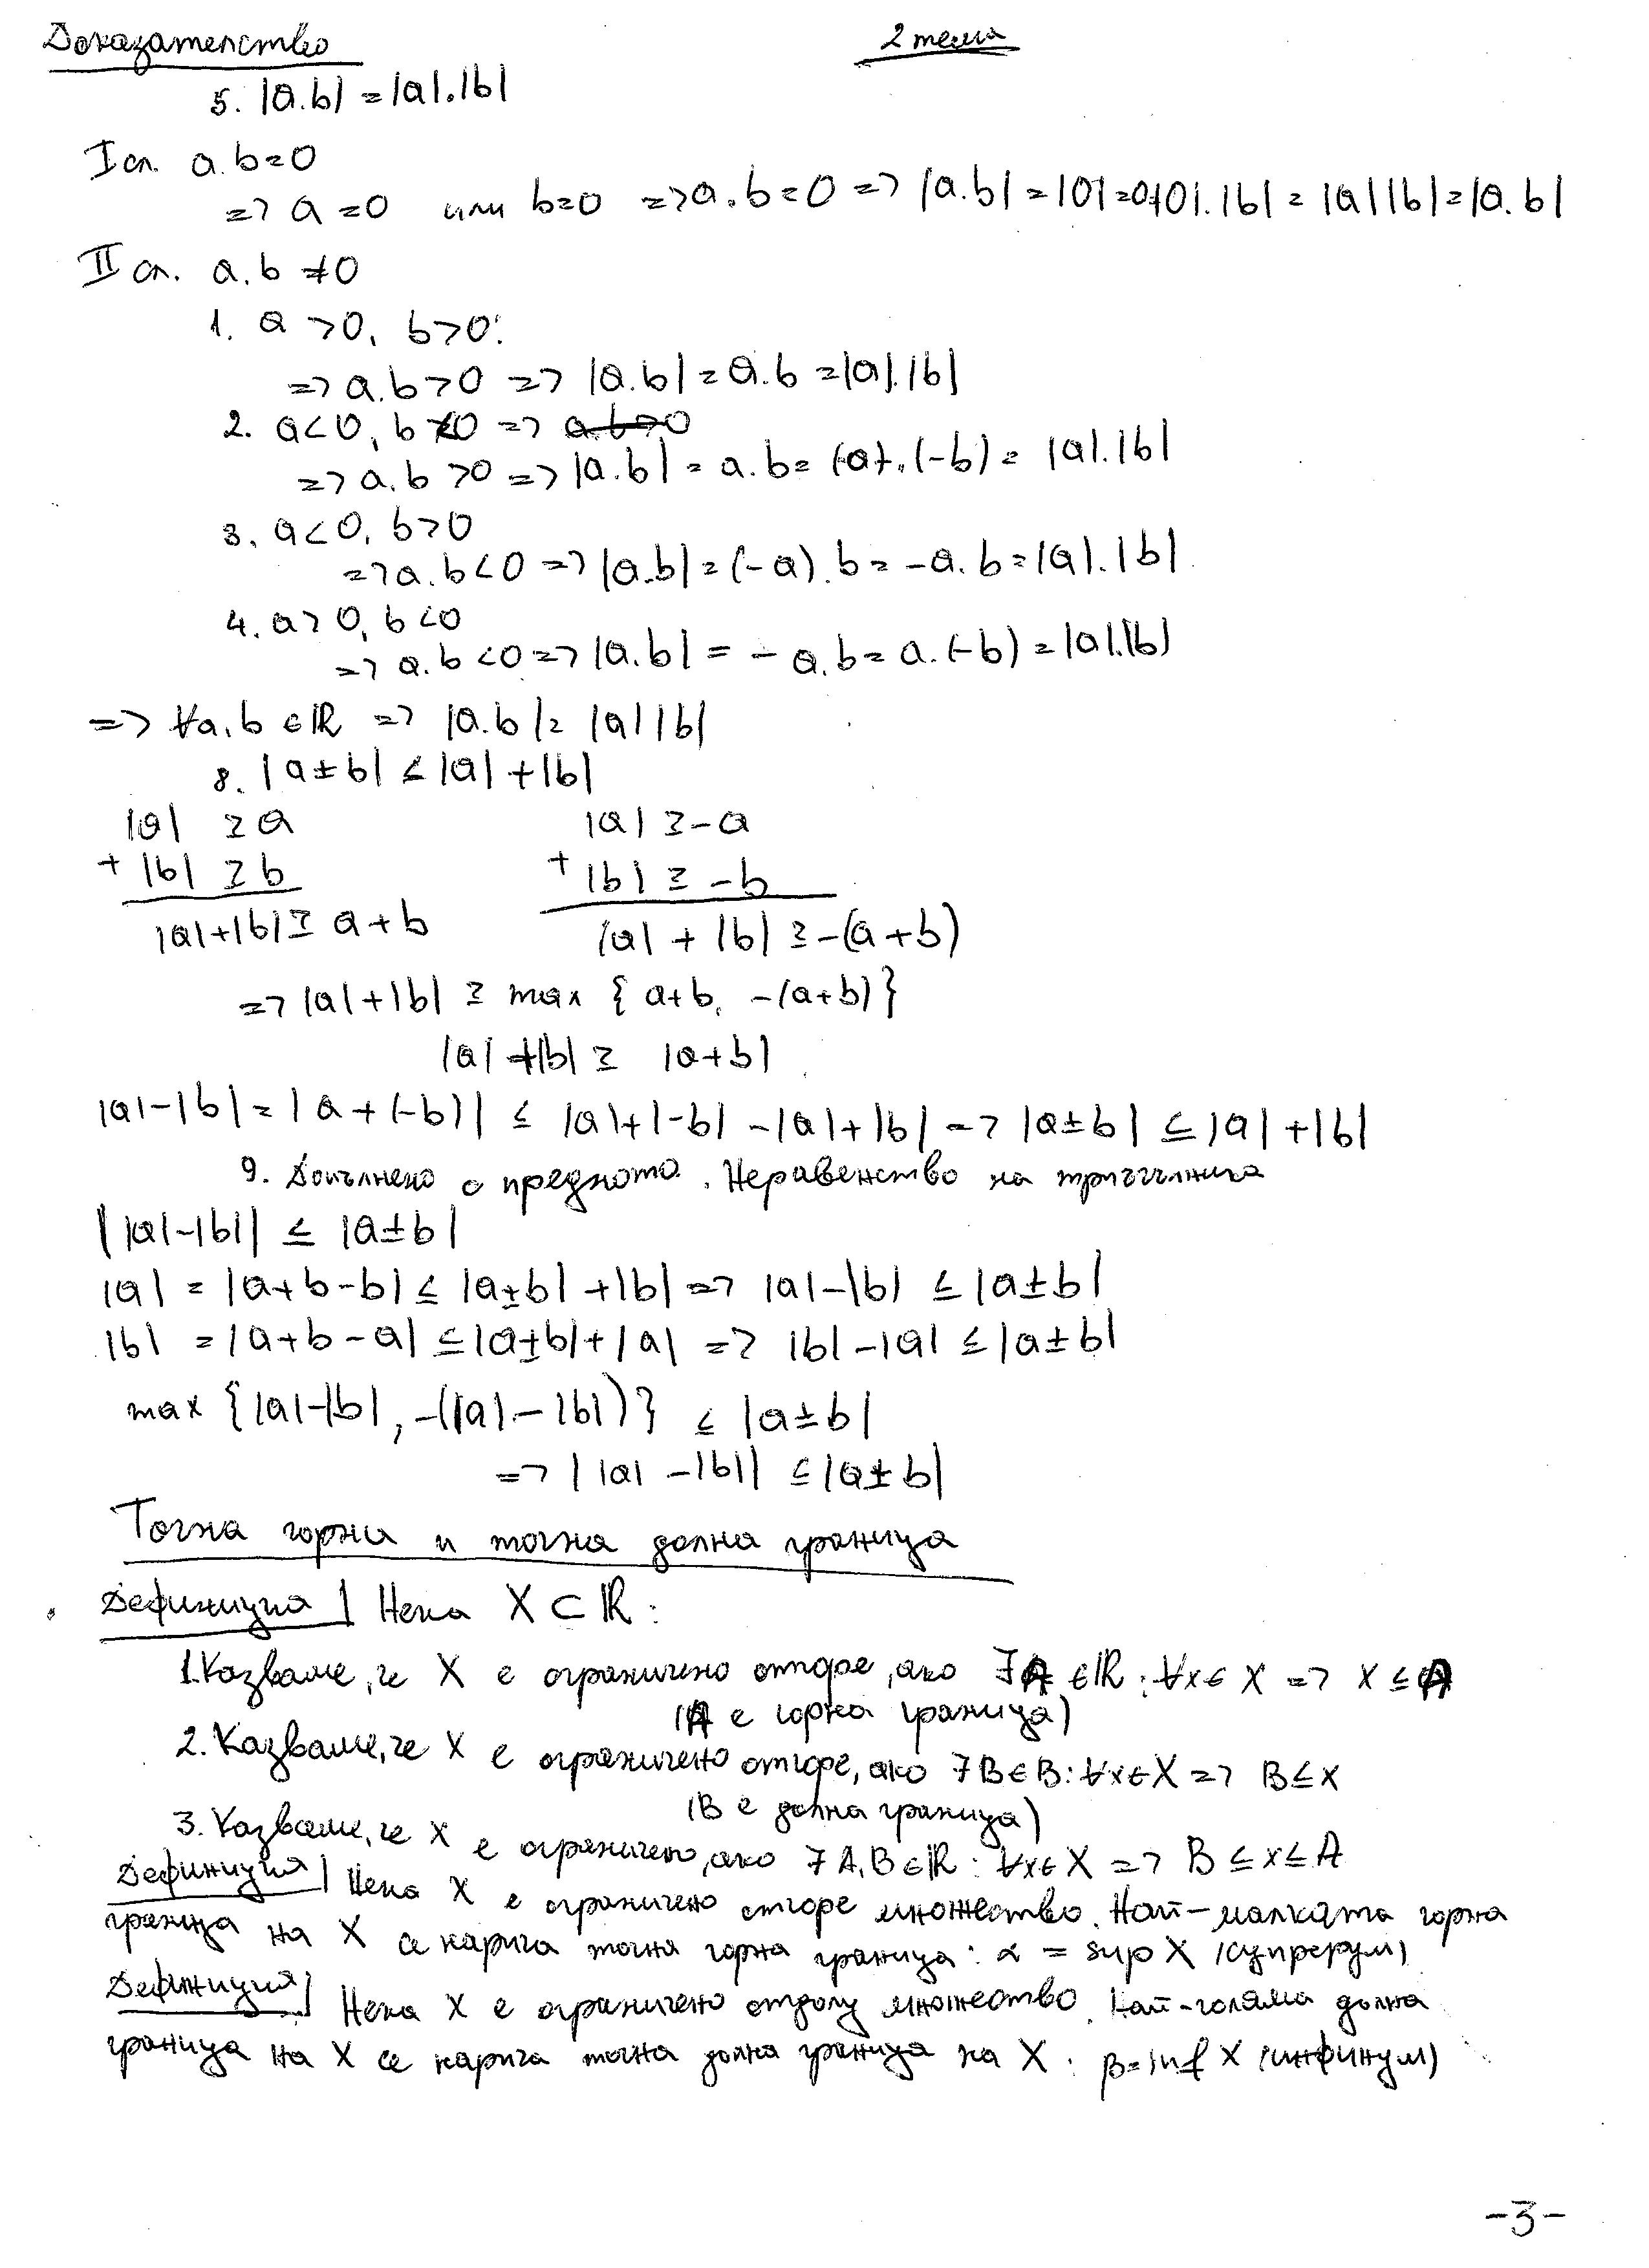 Доказателство
2 тема
5. |a.b| = |a|.|b|
I сл. a.b=0
=> a=0 или b=0 => a.b=0 => |a.b| = |0|=0=|0|.|b| = |a||b|=|a.b|
II сл. a.b ≠0
1. a >0, b>0:
=> a.b>0 => |a.b| = a.b = |a|.|b|
2. a<0, b<0 =>
=> a.b >0 => |a.b| = a.b = (-a).(-b) = |a|.|b|
3. a<0, b>0
=> a.b<0 => |a.b| = (-a).b = -a.b = |a|.|b|
4. a>0, b<0
=> a.b<0 => |a.b| = -a.b = a.(-b) = |a|.|b|
=> ∀a,b ∈ ℝ => |a.b| = |a||b|
8. |a±b| ≤ |a|+|b|
|a| ≥ a |a| ≥ -a
+ |b| ≥ b + |b| ≥ -b
|a|+|b| ≥ a+b |a|+|b| ≥ -(a+b)
=> |a|+|b| ≥ max {a+b, -(a+b)}
|a|+|b| ≥ |a+b|
|a|-|b| = |a+(-b)| ≤ |a|+|-b| - |a|+|b| => |a±b| ≤ |a|+|b|
9. Допълнено с предното. Неравенство на триъгълника
||a|-|b|| ≤ |a±b|
|a| = |a+b-b| ≤ |a±b|+|b| => |a|-|b| ≤ |a±b|
|b| = |a+b-a| ≤ |a±b|+|a| => |b|-|a| ≤ |a±b|
max {|a|-|b|, -(|a|-|b|)} ≤ |a±b|
=> ||a|-|b|| ≤ |a±b|
Точна горна и точна долна граница
Дефиниция | Нека X ⊂ ℝ:
1. Казваме, че X е ограничено отгоре, ако ∃A ∈ ℝ: ∀x∈X => x ≤ A
(A е горна граница)
2. Казваме, че X е ограничено отгоре, ако ∃B∈B: ∀x∈X => B ≤ x
(B е долна граница)
3. Казваме, че X е ограничено, ако ∃A,B∈ℝ: ∀x∈X => B ≤ x ≤ A
Дефиниция | Нека X е ограничено отгоре множество. Най-малката горна
граница на X се нарича точна горна граница: α = sup X (супремум)
Дефиниция | Нека X е ограничено отдолу множество. Най-голяма долна
граница на X се нарича точна долна граница на X: β = inf X (инфинум)
-3-